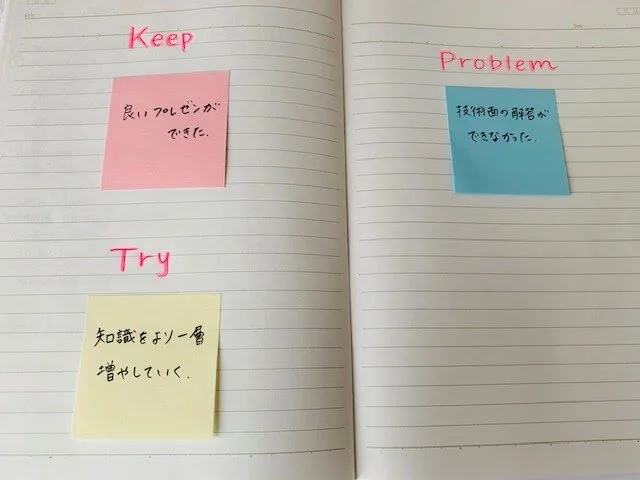 Keep
良いプレゼンが
できた.
Problem
技術面の解答が
できなかった.
Try
知識をより一層
増やしていく.